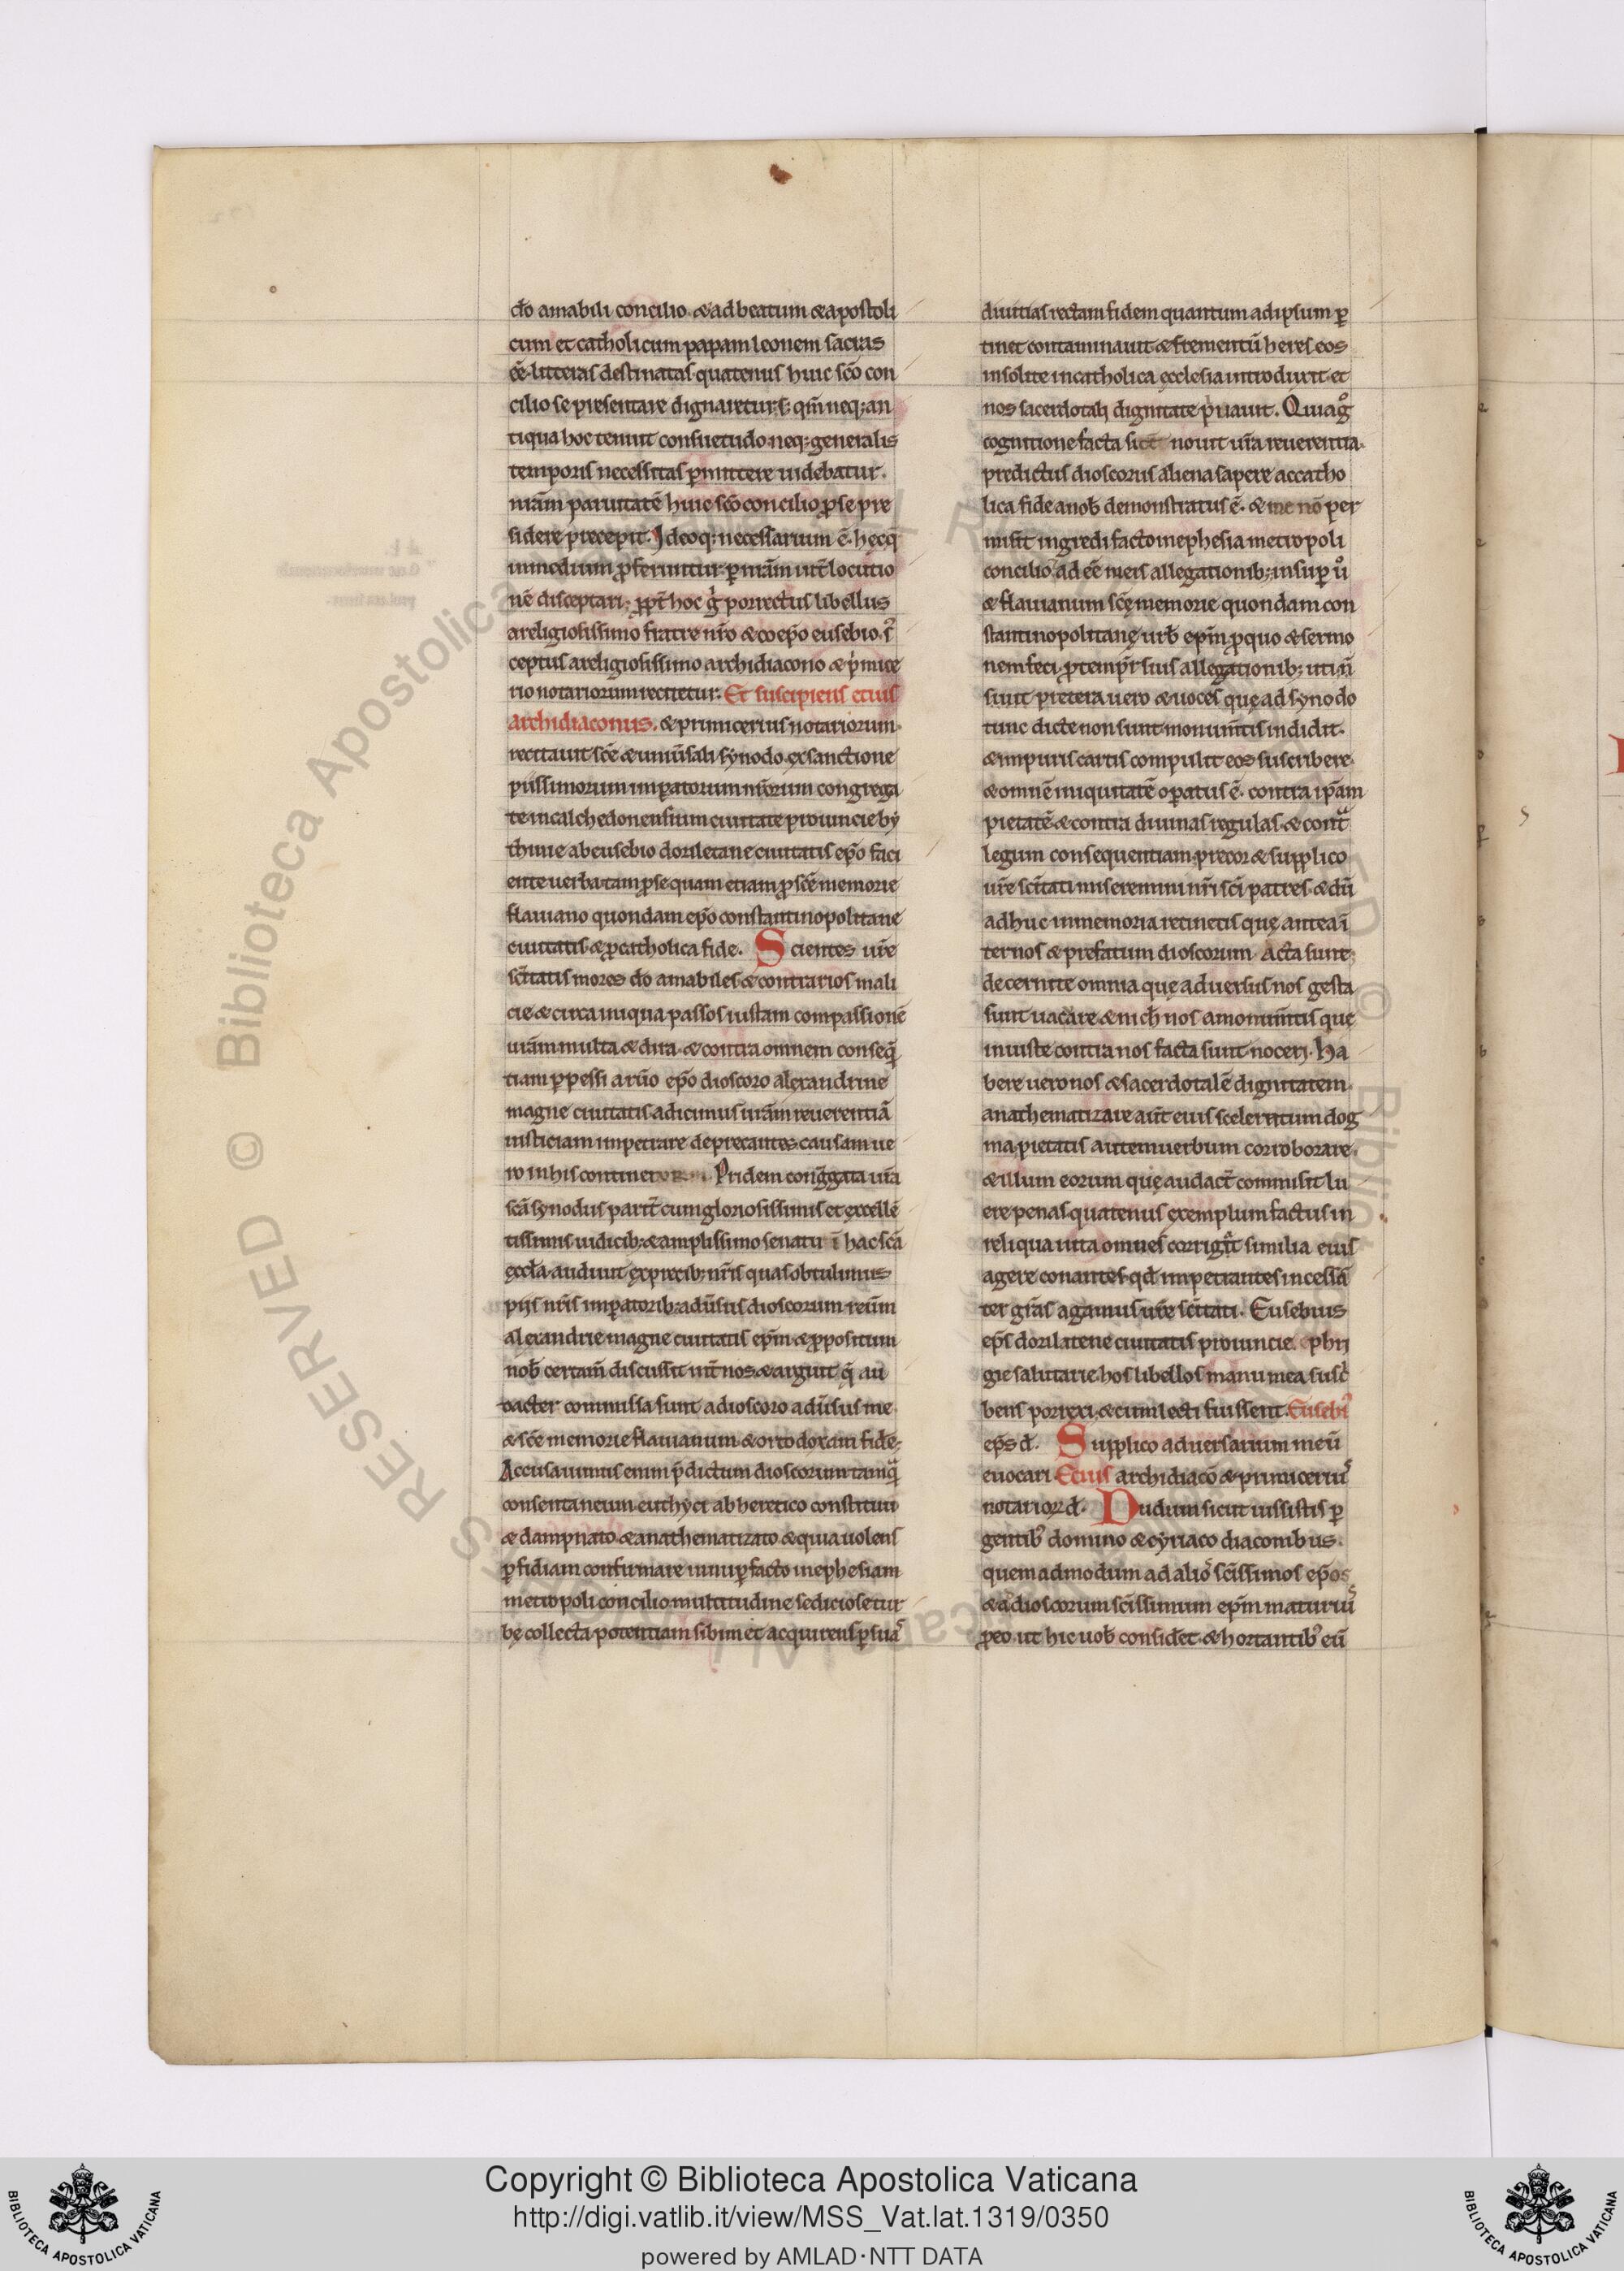 do amabili concilio. & ad beatum & apostoli
cum et catholicum papam leonem sacras
eē litteras destinatas quatenus huic scō con
cilio se presentare dignaretur. s; qm̄ neq; an
tiqua hoc tenuit consuetudo. neq; generalis
temporis necessitas p̄mittere uidebatur.
nrām paruitatē huic scō concilio ꝓ se pre
sidere precepit. Ideoq; necessarium ē. hęc q̄
in medium ꝓferuntur p nrām int̄locutio
nē disceptari. ꝓpt̄ hoc ḡ porrectus libellus
a religiosissimo fratre nr̄o & coep̄o eusebio. s
ceptus a religiosissimo archidiacono & p̄mice
rio notariorum recitetur. Et suscipiens ecius
archidiaconus. & primicerius notariorum
recitauit. scē & uniūsali synodo. ex sanctione
piissimorum imꝑatorum nr̄orum congrega
te in calchedonensium ciuitate prouincie by
thinie ab eusebio doriletane ciuitatis ep̄o faci
ente uerba tam ꝓ se quam etiam ꝓ scē memorie
flauiano quondam ep̄o constantinopolitane
ciuitatis & ꝓ catholica fide. Scientes ur̄e
sc̄itatis mores do amabiles & contrarios mali
cie & circa iniqua passos iustam compassionē
urām. multa & dira. & contra omnem conseq̄
tiam ꝑpessi a r̄uo ep̄o dioscoro alexandrine
magne ciuitatis adicimus urām reuerentiā
iusticiam impetrare deprecantes. causam ue
ro in his continet Pridem cong̃gata urā
scā synodus parit̄ cum gloriosissimis et excellē
tissimis iudicib; & amplissimo senatu ī hac scā
ęccl̄a. audiuit ex precib; nr̄is quas obtulimus
piis nr̄is imꝑatorib; adūsus dioscorum reūm
alexandrie magne ciuitatis ep̄m & ꝓpositum
nob̄ certam̄ discussit int̄ nos. & arguit q̄ au
dacter commissa sunt a dioscoro adūsus me
& scē memorie flauianum. & ortodoxam fidē.
Accusauimus enim p̄dictum dioscorum tamq̄
consentaneum euthyci ab heretico constituti
& dampnato. & anathematizato & quia uolens
ꝑfidiam confirmare in nuꝑ facto in ephesiam
metropoli concilio multitudine sediciose tur
bę collecta. potentiam sibimet acquirens ꝑ sua
diuitias rectam fidem quantum ad ipsum ꝑ
tinet contaminauit & frementū hereseos
insolite in catholica ęcclesia introduxit. et
nos sacerdotali dignitate p̄uauit. Quia gͦ
cognitione facta sicut nouit ur̄a reuerentia.
predictus dioscorus aliena sapere a catho
lica fide a nob̄ demonstratus ē. & me nō per
misit ingredi facto in ephesia metropoli
concilio. ad eē meis allegationib; insuꝑ uͦ
& flauianum scę memorie quondam con
stantinopolitanę urb̄ ep̄m ꝓ quo & sermo
nem feci. ꝓ temp̄r suis allegationib; uti n̄
siuit. preterea uero & uoces quę ad synodo
tunc dicte non sunt. monum̄tis indidit.
& in puris cartis compulit eos suscribere.
& omnē iniquitatē oꝑatus ē. contra ip̄am
pietatē & contra diuinas regulas. & cont̄
legum consequentiam. precor & supplico
ur̄e sc̄itati miseremini nr̄i sc̄i patres. & dū
adhuc in memoria retinetis quę antea ī
ter nos & prefatum dioscorum. Acta sunt.
decernite omnia quę aduersus nos gesta
sunt uacare. & nich̄ nos a monum̄tis que
iniuste contra nos facta sunt noceri. ha
bere uero nos & sacerdotalē dignitatem.
anathematizare aūt eius sceleratum dog
ma. pietatis autem uerbum corroborare.
& illum eorum quę audact̄ commisit lu
ere penas quatenus exemplum factus in
reliqua uita omnes corrigat̄ similia eius
agere conantes. qd̄ impetrantes incessā
ter grās agamus ur̄e sc̄itati. Eusebius
ep̄s dorilatene ciuitatis prouincie phri
gie salutarie hos libellos manu mea susc̄
bens porrexi. & cum lecti fuissent. Eusebī
ep̄s d̄. Supplico aduersarium meū
euocari. Ecius archidiacō & primiceriū
notarioꝝ d̄. Dudum sicut iussistis ꝑ
gentib; domno & cyriaco diaconibus.
quemadmodum ad alios scissimos ep̄os
& ad dioscorum scissimum ep̄m maturiu
ꝓeo. ut hic uob̄ consid̄et. & hortantib; eū
Copyright © Biblioteca Apostolica Vaticana
http://digi.vatlib.it/view/MSS_Vat.lat.1319/0350
powered by AMLAD·NTT DATA